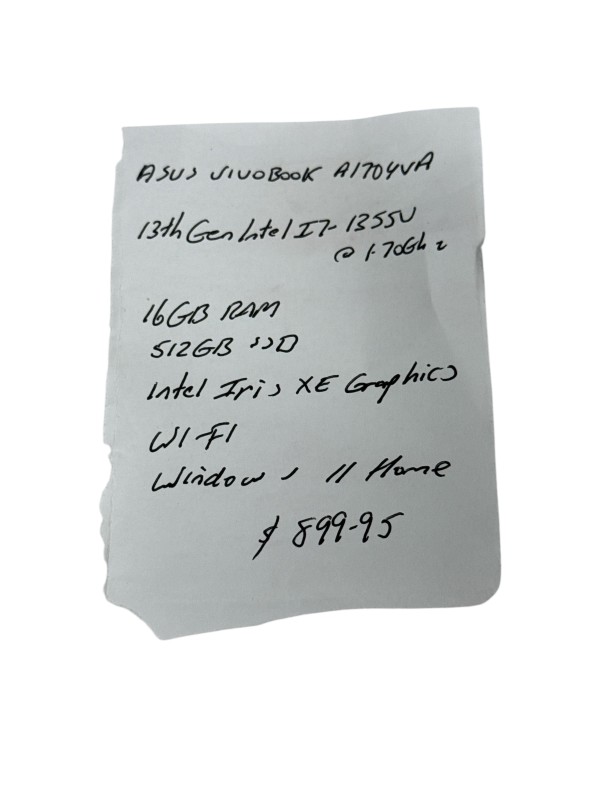 ASUS VIVOBOOK A1704VA
13th Gen Intel I7-1355U
@ 1.70Ghz
16GB RAM
512GB SSD
Intel Iris XE Graphics
WI-FI
Windows 11 Home
$ 899-95